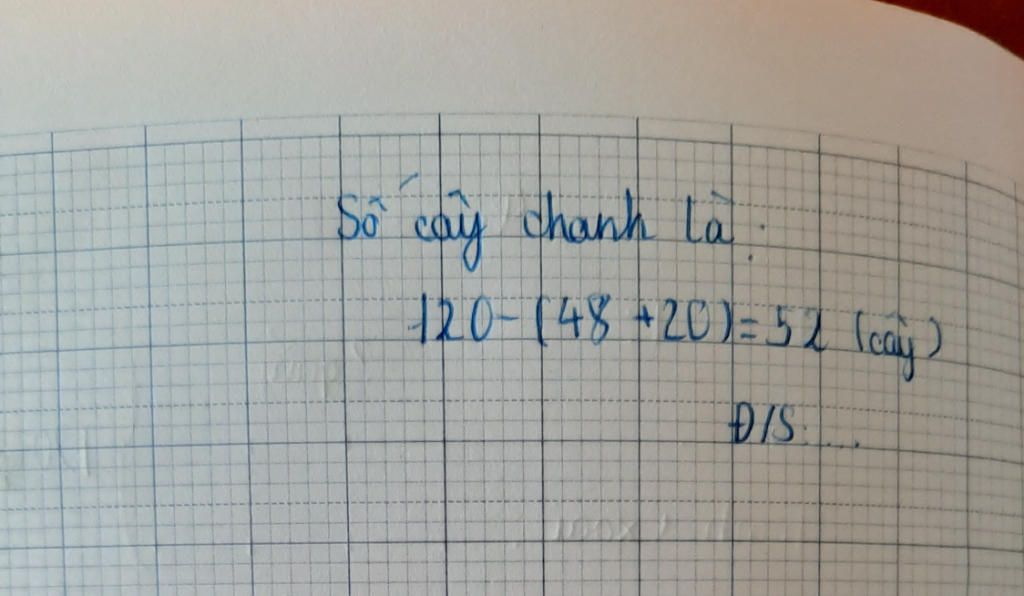 Số cây chanh là:
120 - (48 + 20) = 52 (cây)
Đ/S: ....